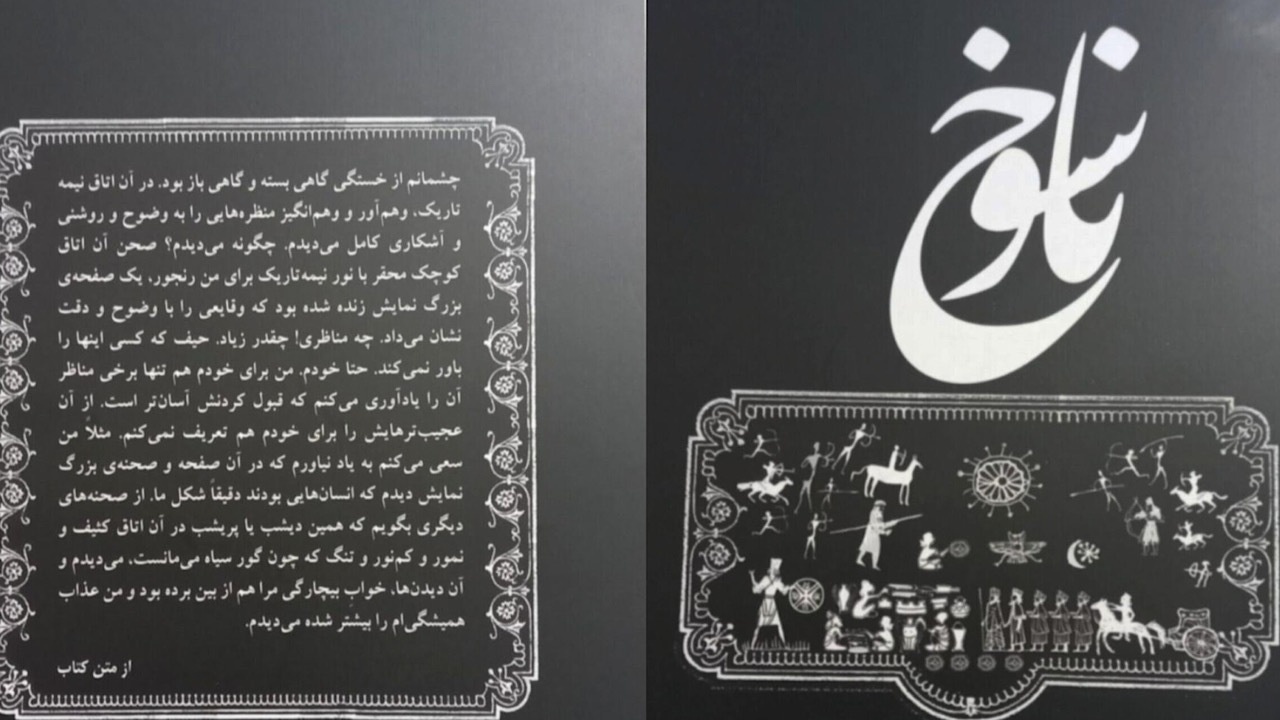 ناسوخ
چشمانم از خستگی گاهی بسته و گاهی باز بود. در آن اتاق نیمه
تاریک، وهم‌آور و وهم‌انگیز منظره‌هایی را به وضوح و روشنی
و آشکاری کامل می‌دیدم. چگونه می‌دیدم؟ صحن آن اتاق
کوچک محقر با نور نیمه‌تاریک برای من رنجور، یک صفحه‌ی
بزرگ نمایش زنده شده بود که وقایعی را با وضوح و دقت
نشان می‌داد. چه مناظری! چقدر زیاد. حیف که کسی اینها را
باور نمی‌کند. حتا خودم. من برای خودم هم تنها برخی مناظر
آن را یادآوری می‌کنم که قبول کردنش آسان‌تر است. از آن
عجیب‌ترهایش را برای خودم هم تعریف نمی‌کنم. مثلاً من
سعی می‌کنم به یاد نیاورم که در آن صفحه و صحنه‌ی بزرگ
نمایش دیدم که انسان‌هایی بودند دقیقاً شکل ما. از صحنه‌های
دیگری بگویم که همین دیشب یا پریشب در آن اتاق کثیف و
نمور و کم‌نور و تنگ که چون گور سیاه می‌مانست، می‌دیدم و
آن دیدن‌ها، خوابِ بیچارگی مرا هم از بین برده بود و من عذاب
همیشگی‌ام را بیشتر شده می‌دیدم.
از متن کتاب